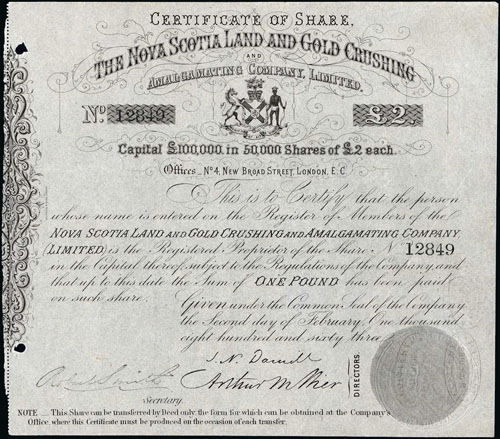 CERTIFICATE OF SHARE,
THE NOVA SCOTIA LAND AND GOLD CRUSHING
AND
AMALGAMATING COMPANY, LIMITED.
No. 12849 £2.
Capital £100,000. in 50,000 Shares of £2 each.
Offices _ No 4, NEW BROAD STREET, LONDON, E.C.
This is to Certify that the person
whose name is entered on the Register of Members of the
NOVA SCOTIA LAND AND GOLD CRUSHING AND AMALGAMATING COMPANY,
(LIMITED) is the Registered Proprietor of the Share No 12849
in the Capital thereof, subject to the Regulations of the Company, and
that up to this date the Sum of ONE POUND has been paid
on such share.
Given under the Common Seal of the Company
the Second day of February, One thousand
eight hundred and sixty three.
J. N.
Smith
Arthur
DIRECTORS.
Secretary.
NOTE __ This Share can be transferred by Deed only, the form for which can be obtained at the Company's
Office, where this Certificate must be produced on the occasion of each transfer.